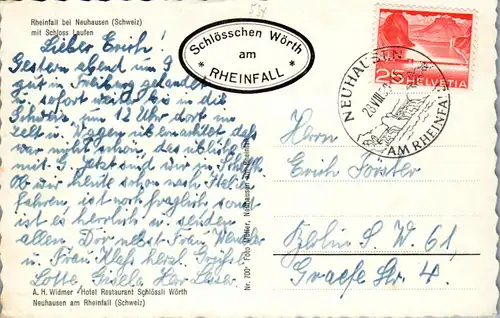 Rheinfall bei Neuhausen (Schweiz)
mit Schloss Laufen
Lieber Erich!
Gestern abend um 9
gut in Freiburg gelandet
u. sofort weiter bis in die
Schweiz, um 12 Uhr dort im
Zelt u. Wagen übernachtet daß
war nicht schön, das übliche
mit G. Jetzt sind wir in
Ob wir heute schon nach Italien
fahren, ist noch fraglich sonst
ist es herrlich u. senden
allen, Dor nebst Frau
u. Frau Klaß herzl.
Lotte, Gisela,
A. H. Widmer, Hotel Restaurant Schlössli Wörth
Neuhausen am Rheinfall (Schweiz)
Nr. 700 Foto Müller, Neuhausen am Rheinfall
Schlösschen Wörth
* am *
RHEINFALL
25 HELVETIA
NEUHAUSEN
AM RHEINFALL
Herrn
Erich Förster
Berlin S. W. 61,
Graefe Str. 4.